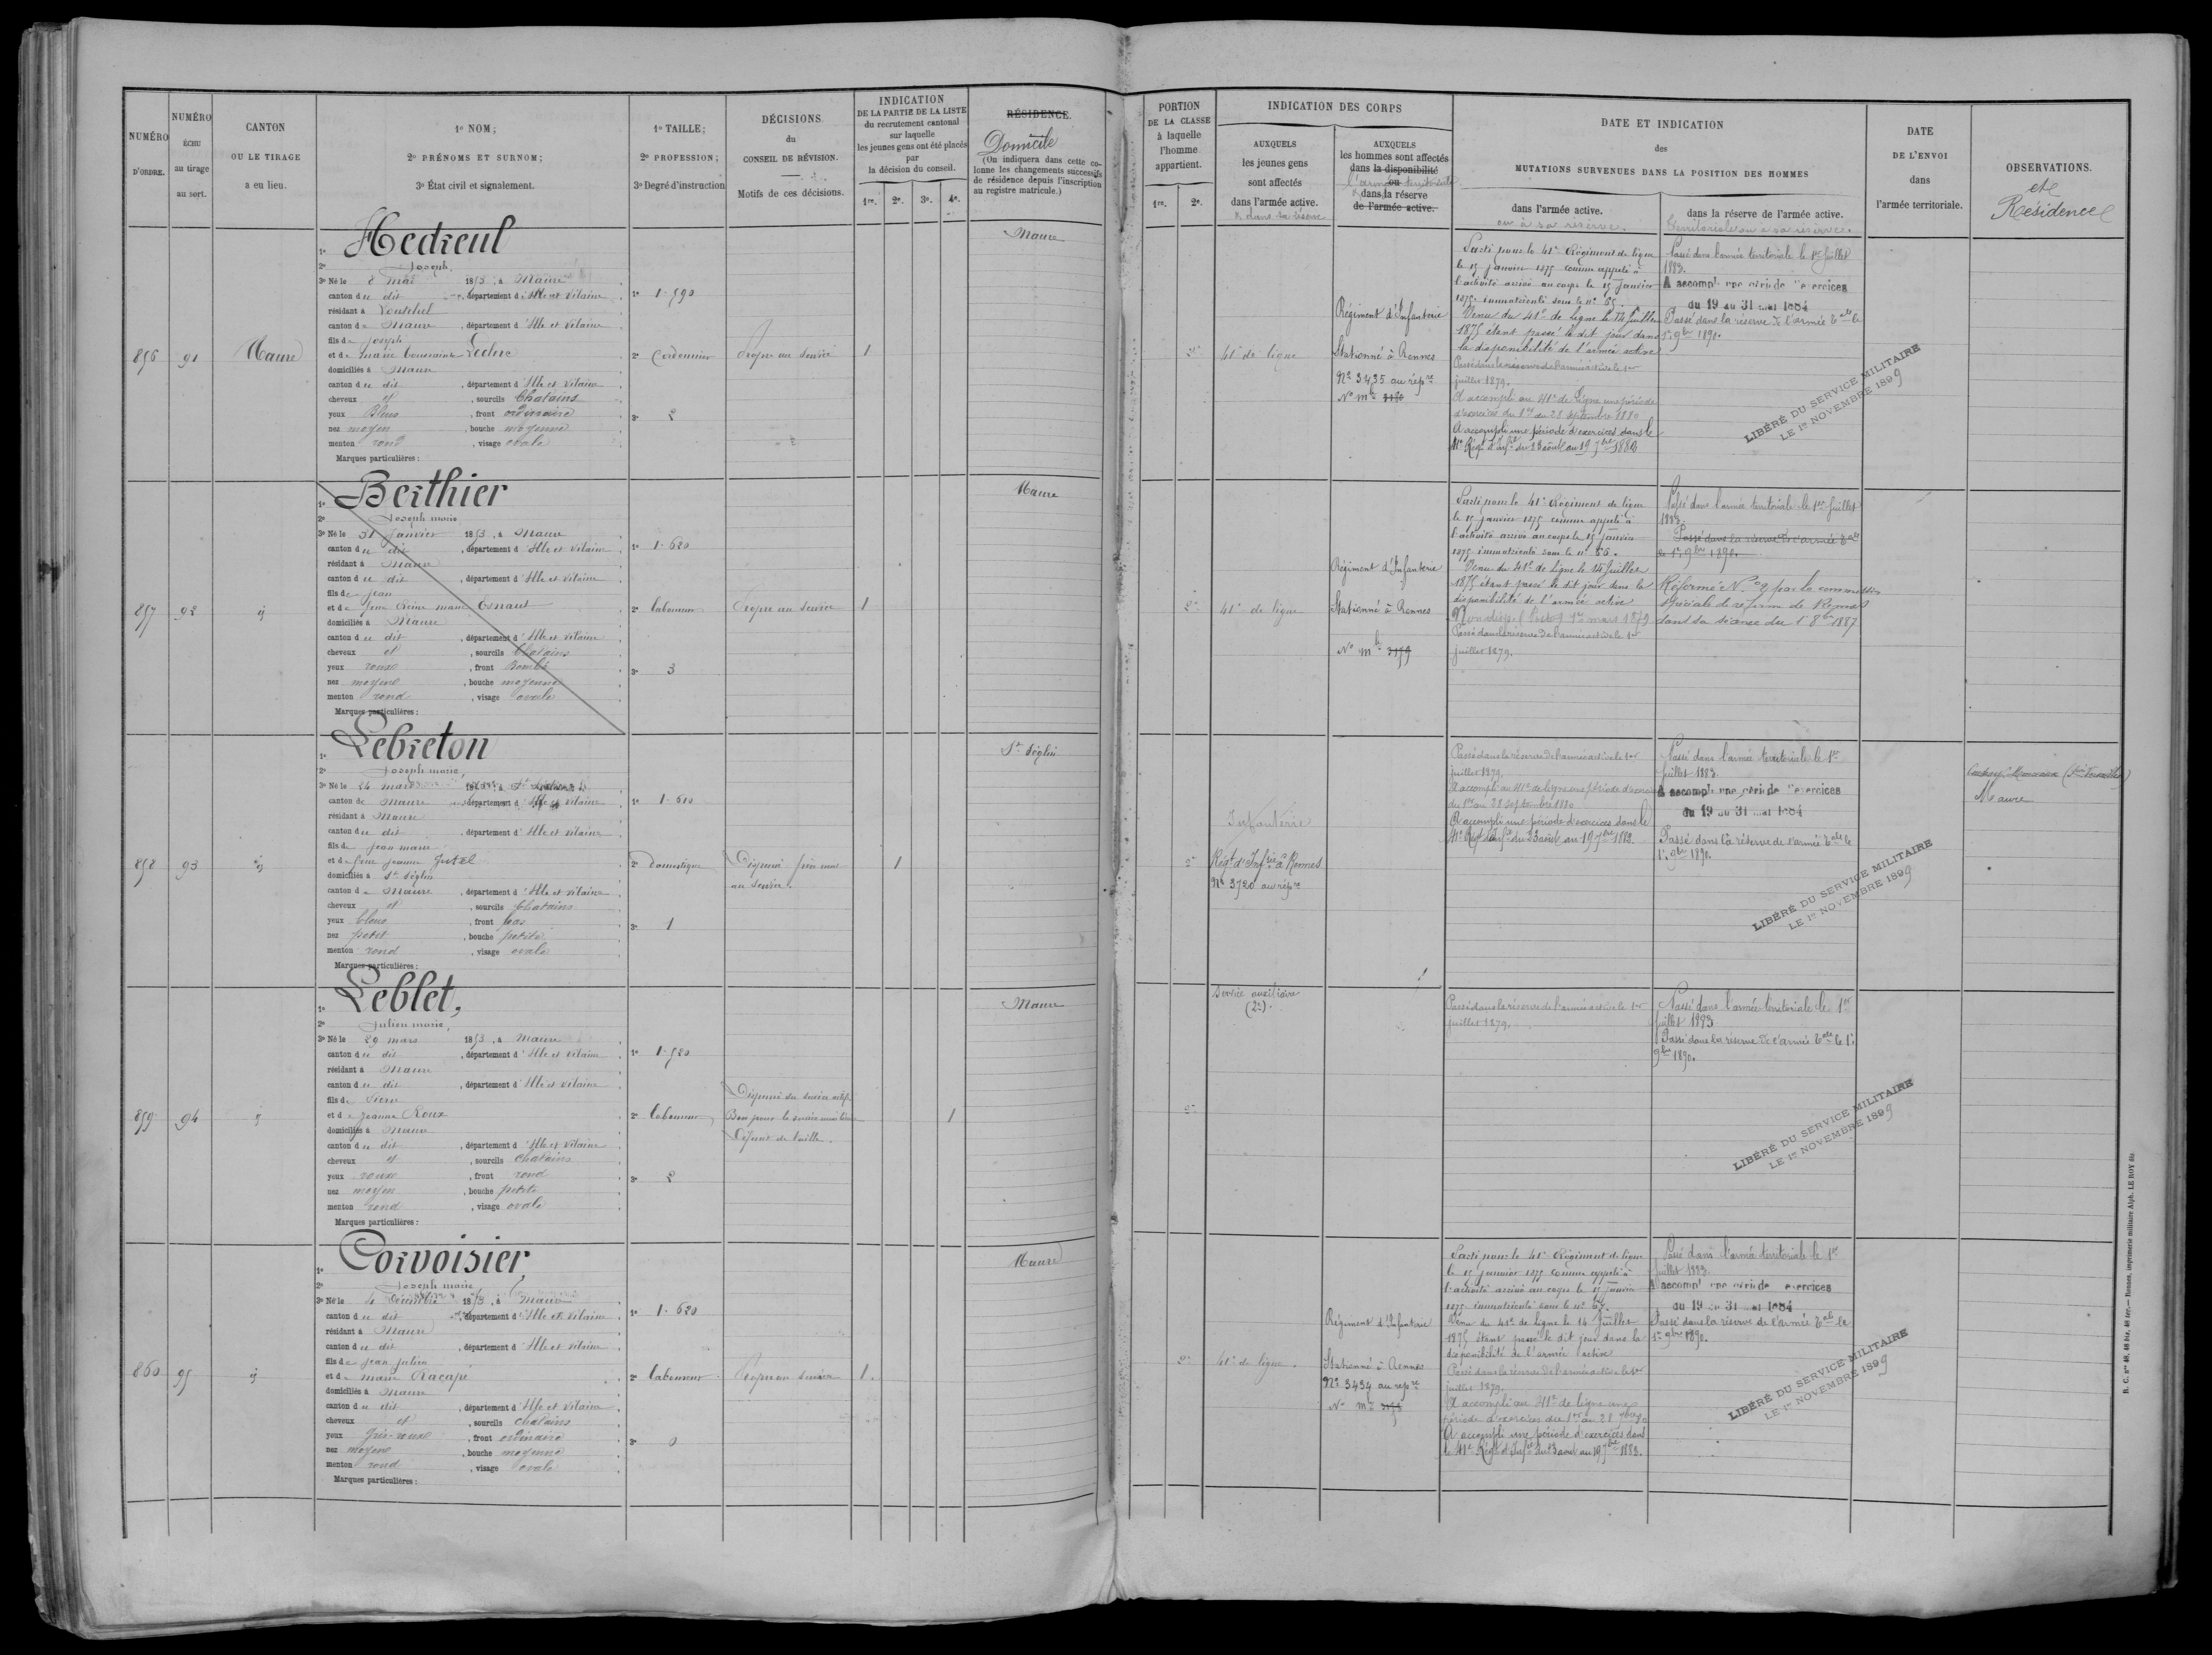 NUMÉRO D'ORDRE.
NUMÉRO ÉCHU au tirage au sort.
CANTON OU LE TIRAGE a eu lieu.
1º NOM;
2º PRÉNOMS ET SURNOM;
3º État civil et signalement.
1º TAILLE;
2º PROFESSION;
3º Degré d'instruction
DÉCISIONS
du
CONSEIL DE RÉVISION.
Motifs de ces décisions.
INDICATION
DE LA PARTIE DE LA LISTE
du recrutement cantonal
sur laquelle
les jeunes gens ont été placés
par
la décision du conseil.
1re. 2e. 3e. 4e.
RÉSIDENCE.
Domicile
(On indiquera dans cette co-
lonne les changements successifs
de résidence depuis l'inscription
au registre matricule.)
PORTION
DE LA CLASSE
à laquelle
l'homme
appartient.
1re. 2e.
INDICATION DES CORPS
AUXQUELS
les jeunes gens
sont affectés
dans l'armée active.
& dans sa réserve
AUXQUELS
les hommes sont affectés
dans la disponibilité
ou
l'armée territoriale
& dans la réserve
de l'armée active.
DATE ET INDICATION
des
MUTATIONS SURVENUES DANS LA POSITION DES HOMMES
dans l'armée active.
ou à sa réserve.
dans la réserve de l'armée active.
territoriale ou à sa réserve.
DATE
DE L'ENVOI
dans
l'armée territoriale.
OBSERVATIONS.
et
Résidence
856
91
Maure
1º Hedreul
2º Joseph,
3º Né le 8 mai 1853, à Maure
canton du dit, département d'Ille et Vilaine
résidant à
canton de Maure, département d'Ille et Vilaine
fils de Joseph
et de Marie Toussainte Leclerc
domiciliés à Maure
canton du dit, département d'Ille et Vilaine
cheveux et, sourcils Chatains
yeux Bleus, front ordinaire
nez moyen, bouche moyenne
menton rond, visage ovale
Marques particulières:
1º 1.590
2º Cordonnier
3º 2
Propre au service
1
Maure
2e
41e de ligne
Régiment d'Infanterie
Stationné à Rennes
Nº 3435 au répre
Nº mle
Parti pour le 41e Régiment de ligne
le 15 janvier 1875 comme appelé à
l'activité arrivé au corps le 15 janvier
1875 immatriculé sous le nº 65.
Venu du 41e de Ligne le 14 Juillet
1875 étant passé le dit jour dans
la disponibilité de l'armée active
Passé dans la réserve de l'armée active le 1er
juillet 1879.
A accompli au 41e de Ligne une période
d'exercice du 1er au 28 septembre 1880
A accompli une période d'exercices dans le
41e Régt d'Infie du 23 août au 19 7bre 1883
Passé dans l'armée territoriale le 1er Juillet
1883.
A accompli une période d'exercices
du 19 au 31 mai 1884
Passé dans la réserve de l'armée tale le
1er 9bre 1890.
LIBÉRÉ DU SERVICE MILITAIRE
LE 1er NOVEMBRE 1899
857
92
id
1º Berthier
2º Joseph marie
3º Né le 31 Janvier 1853, à Maure
canton du dit, département d'Ille et Vilaine
résidant à Maure
canton du dit, département d'Ille et Vilaine
fils de Jean
et de feue Reine marie Esnault
domiciliés à Maure
canton du dit, département d'Ille et Vilaine
cheveux et, sourcils Chatains
yeux roux, front Bombé
nez moyen, bouche moyenne
menton rond, visage ovale
Marques particulières:
1º 1.620
2º laboureur
3º 3
Propre au service
1
Maure
2e
41e de ligne
Régiment d'Infanterie
Stationné à Rennes
Nº mle 3179
Parti pour le 41e Régiment de ligne
le 15 janvier 1875 comme appelé à
l'activité arrivé au corps le 15 janvier
1875 immatriculé sous le nº 66.
Venu du 41e de Ligne le 14 Juillet
1875 étant passé le dit jour dans la
disponibilité de l'armée active
1er mars 1879
Passé dans la réserve de l'armée active le 1er
juillet 1879.
Passé dans l'armée territoriale le 1er Juillet
1883.
Passé dans la réserve de l'armée tale
le 1er 9bre 1890.
Réformé Nº 2 par la commission
spéciale de réforme de Rennes
dans sa séance du 1er 8bre 1887
858
93
id
1º Lebreton
2º Joseph marie,
3º Né le 24 mars 1853, à St Séglin
canton de Maure, département d'Ille et Vilaine
résidant à Maure
canton du dit, département d'Ille et Vilaine
fils de Jean marie
et de feue Jeanne Jutel
domiciliés à St Séglin
canton de Maure, département d'Ille et Vilaine
cheveux et, sourcils Chatains
yeux bleus, front bas
nez petit, bouche petite
menton rond, visage ovale
Marques particulières:
1º 1.610
2º domestique
3º 1
Dispensé frère mort
au service.
1
St Séglin
2e
Infanterie
Régt d'Infrie à Rennes
Nº 3720 au répre
Passé dans la réserve de l'armée active le 1er
juillet 1879.
A accompli au 41e de ligne une période d'exercice
du 1er au 28 septembre 1880
A accompli une période d'exercices dans le
41e Régt d'Infie du 23 août au 19 7bre 1883.
Passé dans l'armée territoriale le 1er
Juillet 1883.
A accompli une période d'exercices
du 19 au 31 mai 1884
Passé dans la réserve de l'armée tale le
1er 9bre 1890.
LIBÉRÉ DU SERVICE MILITAIRE
LE 1er NOVEMBRE 1899
Maure
859
94
id
1º Leblet,
2º Julien marie,
3º Né le 29 mars 1853, à Maure
canton du dit, département d'Ille et Vilaine
résidant à Maure
canton du dit, département d'Ille et Vilaine
fils de Pierre
et de Jeanne Roux
domiciliés à Maure
canton du dit, département d'Ille et Vilaine
cheveux et, sourcils Chatains
yeux roux, front rond
nez moyen, bouche petite
menton rond, visage ovale
Marques particulières:
1º 1.520
2º laboureur
3º 2
Dispensé du service actif.
Bon pour le service auxiliaire
Défaut de taille.
1
Maure
2e
Service auxiliaire
(2e).
Passé dans la réserve de l'armée active le 1er
juillet 1879.
Passé dans l'armée territoriale le 1er
Juillet 1883
Passé dans la réserve de l'armée tale le 1er
9bre 1890.
LIBÉRÉ DU SERVICE MILITAIRE
LE 1er NOVEMBRE 1899
860
95
id
1º Corvoisier,
2º Joseph marie
3º Né le 4 Décembre 1853, à Maure
canton du dit, département d'Ille et Vilaine
résidant à Maure
canton du dit, département d'Ille et Vilaine
fils de Jean Julien
et de marie Racapé
domiciliés à Maure
canton du dit, département d'Ille et Vilaine
cheveux et, sourcils chatains
yeux gris-roux, front ordinaire
nez moyen, bouche moyenne
menton rond, visage ovale
Marques particulières:
1º 1.620
2º laboureur
3º 0
Propre au service
1.
Maure
2e
41e de ligne.
Régiment d'Infanterie
Stationné à Rennes
Nº 3434 au répre
Nº mle
Parti pour le 41e Régiment de ligne
le 15 janvier 1875 comme appelé à
l'activité arrivé au corps le 15 janvier
1875 immatriculé sous le nº 67.
Venu du 41e de Ligne le 14 Juillet
1875 étant passé le dit jour dans la
disponibilité de l'armée active
Passé dans la réserve de l'armée active le 1er
juillet 1879.
A accompli au 41e de ligne une
période d'exercices du 1er au 28 7bre 80
A accompli une période d'exercices dans
le 41e Régt d'Infie du 23 août au 19 7bre 1883.
Passé dans l'armée territoriale le 1er
Juillet 1883.
A accompli une période d'exercices
du 19 au 31 mai 1884
Passé dans la réserve de l'armée tale le
1er 9bre 1890.
LIBÉRÉ DU SERVICE MILITAIRE
LE 1er NOVEMBRE 1899
B. C. nos 48, 48 bis, 48 ter. — Rennes, imprimerie militaire Alph. LE ROY fils